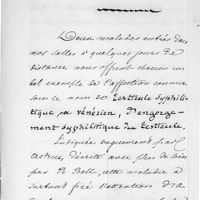 Deux malades entrés dans
nos salles à quelques jours de
distance nous offrent chacun un
bel exemple de l'affection connue
sous le nom de Testicule syphili-
tique, ou vénérien, d'engorge-
ment syphilitique du Testicule.
Indiquée vaguement par
Astruc, décrite avec plus de soin
par B. Bell, cette maladie a
surtout fixé l'attention d'A.